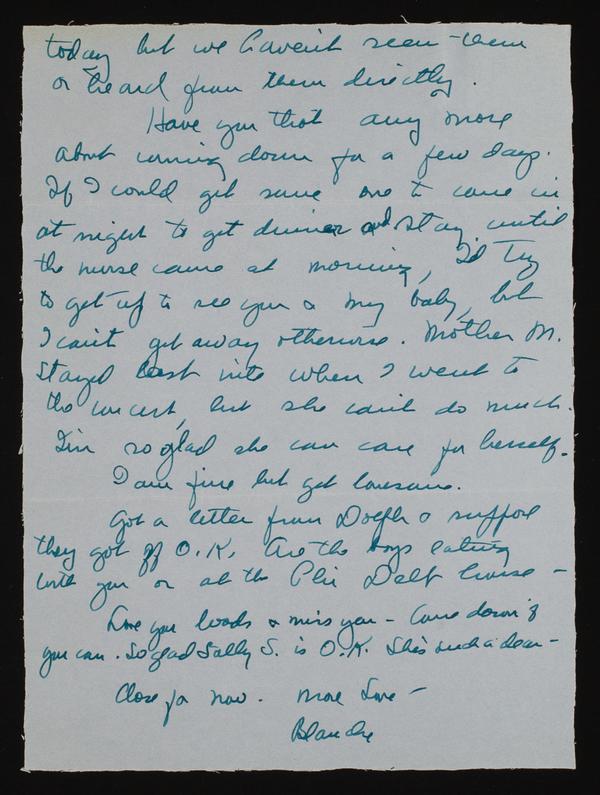 today but we haven't seen them
or heard from them directly.
Have you thot any more
about coming down for a few days.
If I could get some one to come in
at night to get dinner and stay until
the nurse came at morning, I'd try
to get up to see you & my baby, but
I can't get away otherwise. Mother M.
stayed last nite when I went to
the concert, but she can't do much.
I'm so glad she can care for herself.
I am fine but get lonesome.
Got a letter from Dolph & suppose
they got off O.K. Are the boys eating
with you or at the Phi Delt house –
Love you loads & miss you – Come down if
you can. So glad Sally S. is O.K. She's such a dear –
Close for now. More Love –
Blanche